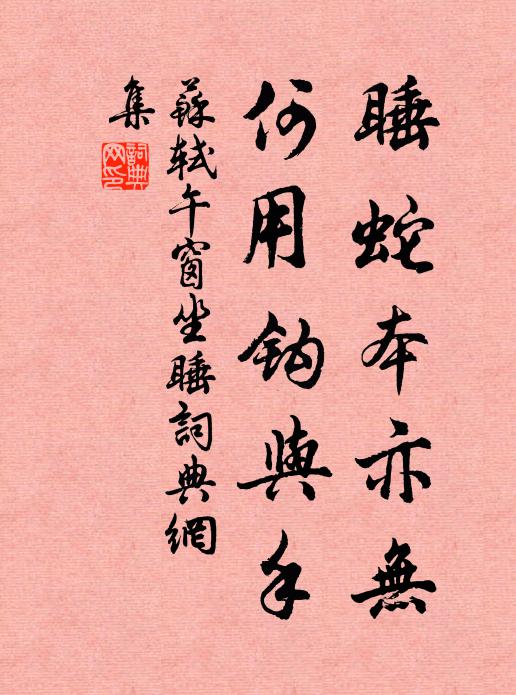 睡蛇本亦無
何用鈎與手
蘇軾午窗坐睡詞典網
集
詞典網印